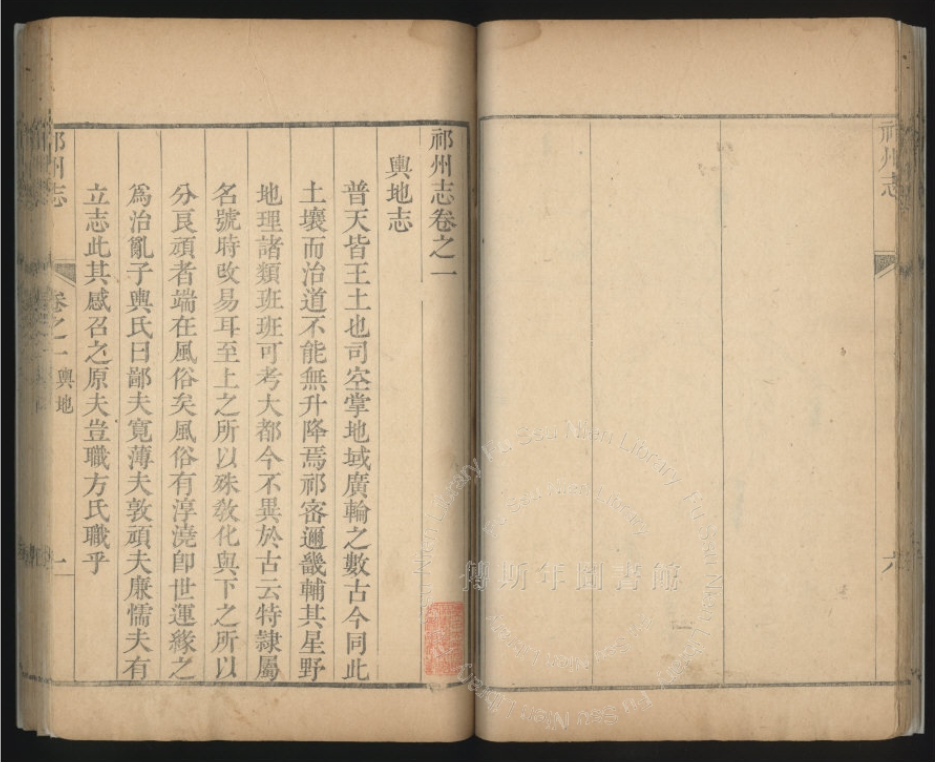 祁州志
六
祁州志卷之一
輿地志
普天皆王土也司空掌地域廣輪之數古今同此
土壤而治道不能無升降焉祁密邇畿輔其星野
地理諸類班班可考大都今不異於古云特隸屬
名號時改易耳至上之所以殊教化與下之所以
分良頑者端在風俗矣風俗有淳澆卽世運緣之
爲治亂子輿氏曰鄙夫寬薄夫敦頑夫廉懦夫有
立志此其感召之原夫豈職方氏職乎
祁州志
卷之一
輿地
一
傅斯年圖書館